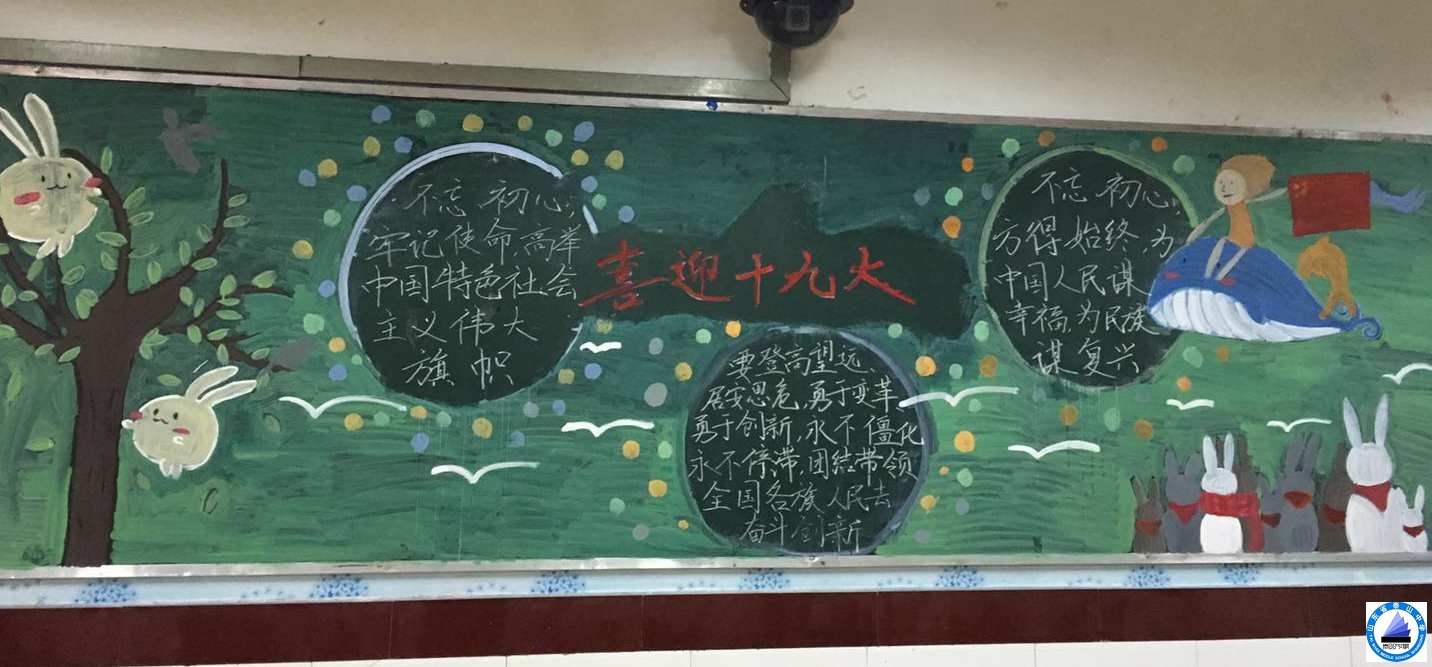 不忘初心，
牢记使命,高举
中国特色社会
主义伟大
旗帜
喜迎十九火
要登高望远、
居安思危,勇于变革
勇于创新,永不僵化
永不停滞,团结带领
全国各族人民去
奋斗创新
不忘初心，
方得始终,为
中国人民谋
幸福,为民族
谋复兴
山东省泰山中学